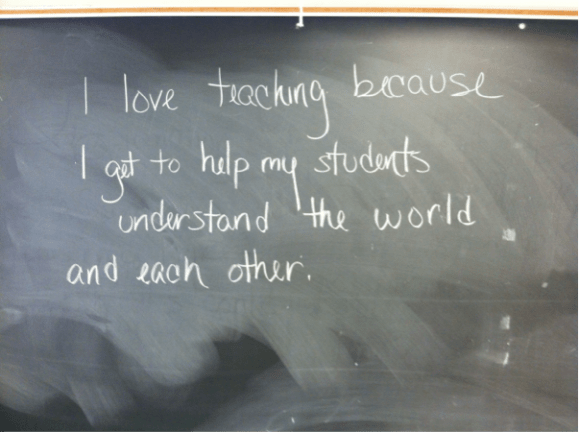 I love teaching because
I get to help my students
understand the world
and each other.